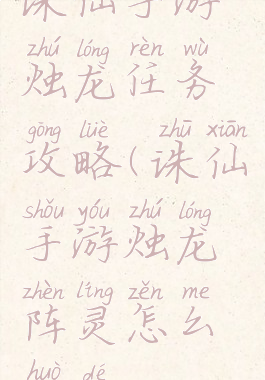 诛仙手游
zhú lóng rèn wù
烛龙任务
gōng lüè zhū xiān
攻略(诛仙
shǒu yóu zhú lóng
手游烛龙
zhèn líng zěn me
阵灵怎么
huò dé